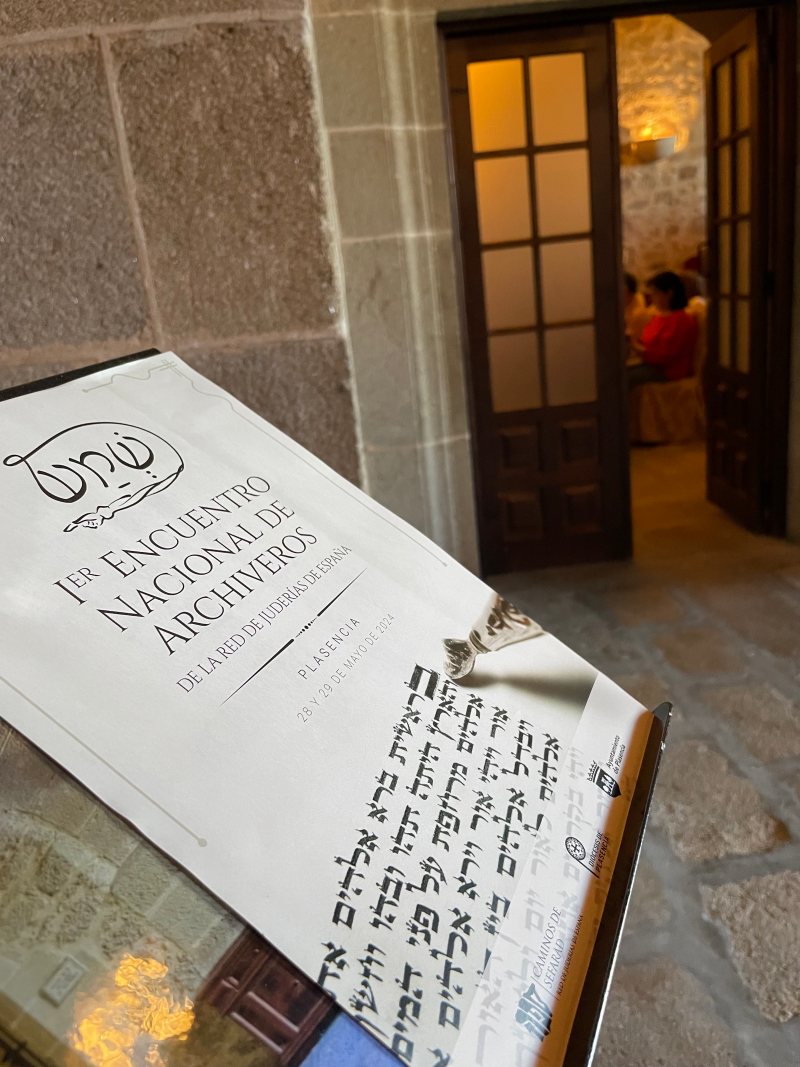 שמש
IER ENCUENTRO
NACIONAL DE
ARCHIVEROS
DE LA RED DE JUDERÍAS DE ESPAÑA
PLASENCIA
28 Y 29 DE MAYO DE 2024
בראשית ברא אלהים
והארץ היתה תהו ובהו וחשך
אלהים מרחפת על פני המים
אור ויהי אור וירא אלהים
ויבדל אלהים בין האור
אלהים לאור יום
ויהי
Ayuntamiento
de Plasencia
DIÓCESIS DE
PLASENCIA
CAMINOS DE
SEFARAD
RED DE JUDERÍAS DE ESPAÑA